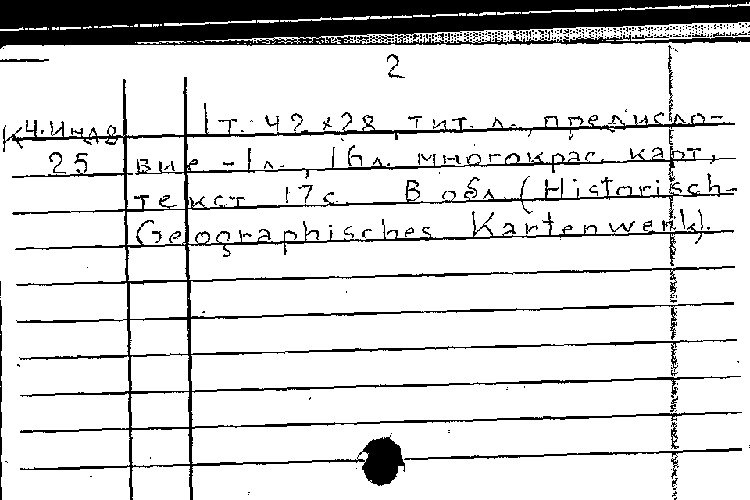 2
К4.Инд8 1т. 42×28, тит. л., предисло-
25 вие - 1л., 16л. многокрас. карт,
текст 17с. В обл (Historisch-
Geographisches Kartenwerk).